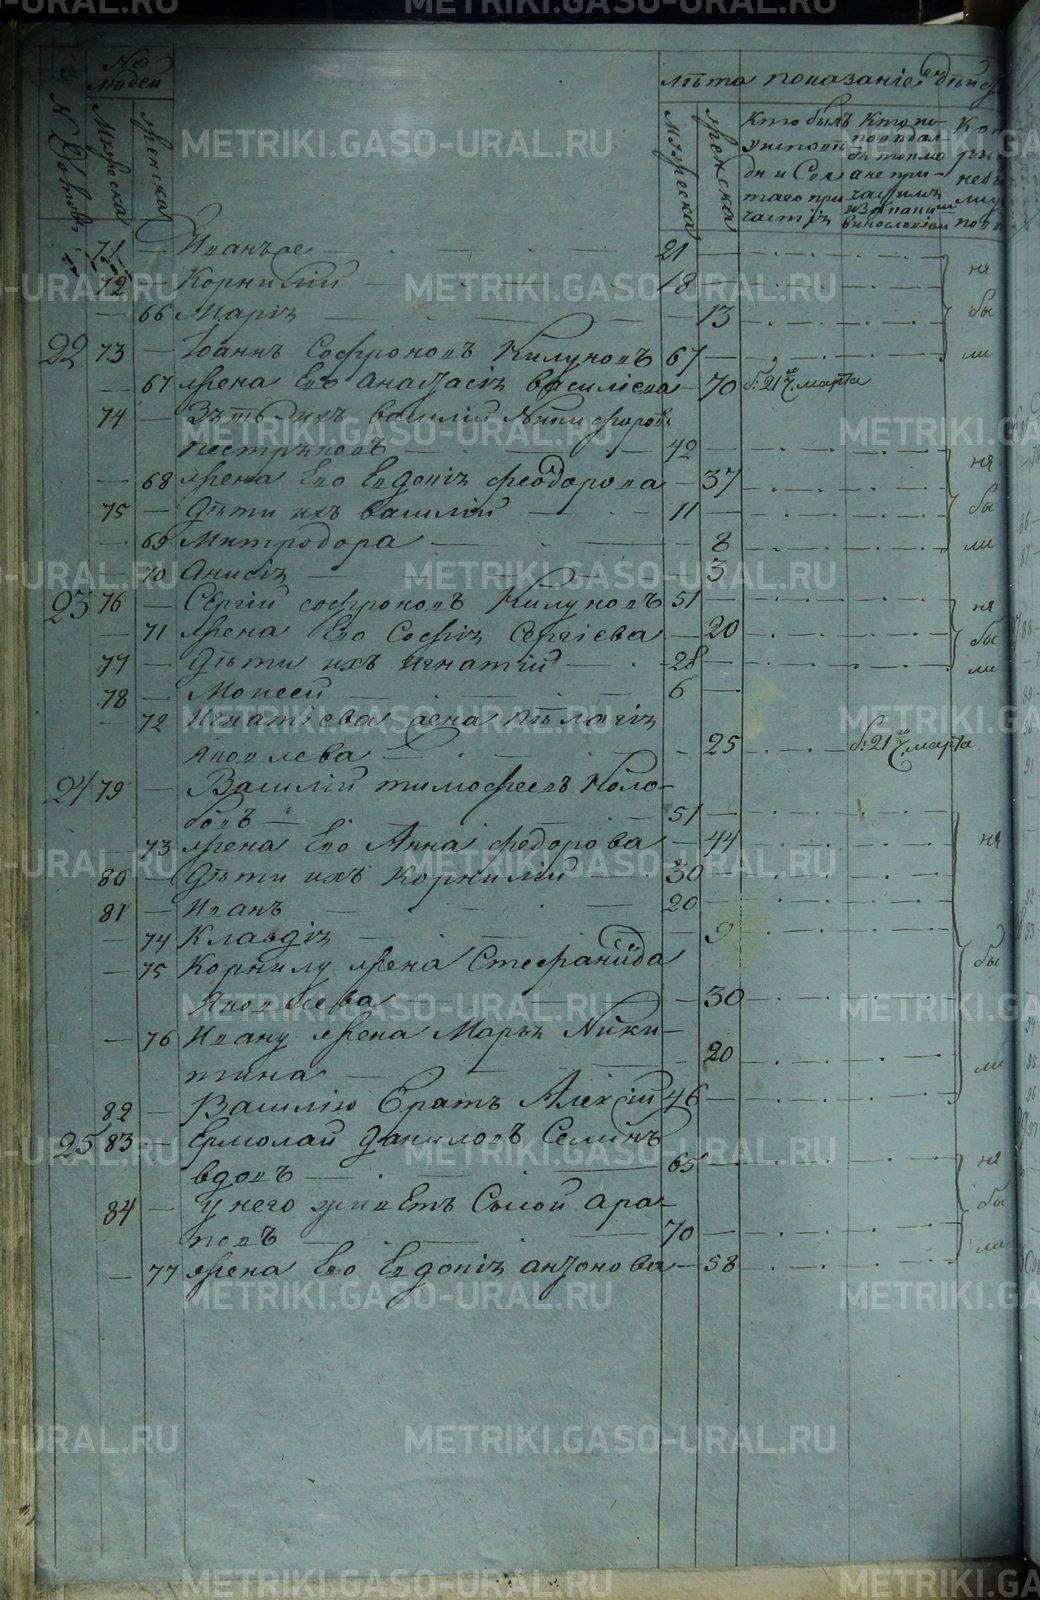 № людей
Лѣта показаніе дѣйс
№ Дворовъ
Мужеска
Женска
Мужеска
Женска
Кто былъ
у исповѣ
ди и Свя
таго при
частія
Кто ис
повѣдал
ся токмо
а не при
частилъ
винословіем
71 — Иванъ же — 21 —
72 — Корнилій — 18 — ня
— 66 Марія — 13 бы
22 73 — Іоаннъ Софроновъ Килуновъ 67 — ли
— 67 жена Его Анастасія Василіева — 70 б: 21го марта
74 — Зять ихъ Василій Никифоровъ
Пестряковъ — 42 — ня
— 68 жена Его Евдокія Феодорова — 37
75 — Дѣти ихъ Василій — 11 — бы
— 69 Митродора — 8 ли
— 70 Анисія — 3
23 76 — Сергій Софроновъ Килуновъ 51 — ня
— 71 жена Его Софія Сергіева — 20 бы
77 — Дѣти ихъ Игнатій — 28 — ли
78 — Моисей — 6 —
— 72 Игнатіева жена Пелагія
Яковлева — 25 б: 21го марта
24 79 — Василій Тимофеевъ Коло-
бовъ — 51 —
— 73 жена Его Анна Федорова — 44 ня
80 — Дѣти ихъ Корнилій — 30 —
81 — Иванъ — 20 —
— 74 Клавдія — 9
— 75 Корнилу жена Стефанида бы
Яковлева — 30
— 76 Ивану жена Марья Ники-
тина — 20 ли
82 — Василію братъ Алексій 46 —
25 83 — Ермолай Даниловъ Семинъ
вдовъ — 65 — ня
84 — У него живетъ Сысой Ара-
повъ — 70 — бы
ли
— 77 жена Его Евдокія Антонова — 58
METRIKI.GASO-URAL.RU